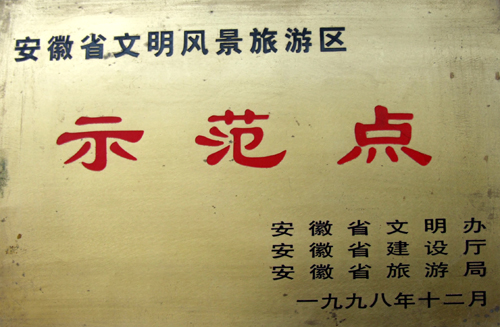 安徽省文明风景旅游区
示范点
安徽省文明办
安徽省建设厅
安徽省旅游局
一九九八年十二月